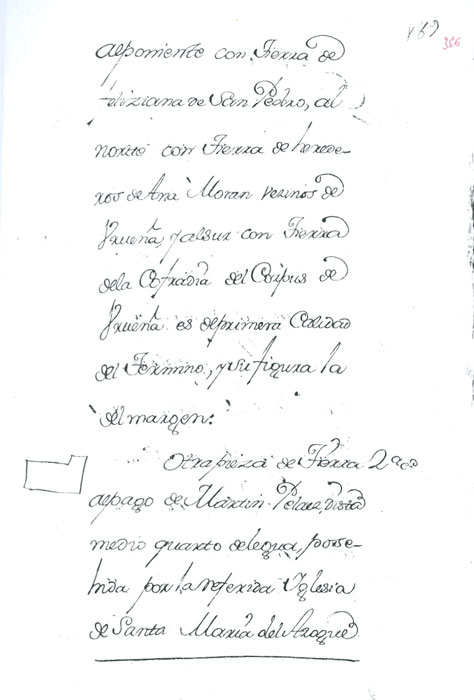 169
356
alponiente con Tierra de
Feliziana de San Pedro, al
norte con Tierra de herede-
ros de Ana Moran vezinos de
Brueña, y alsur con Tierra
dela Cofradia del Corpus de
Brueña es deprimera Calidad
del Termino, y su figura la
del margen:
Otra pieza de Tierra
alpago de Martin Pelaez, dista
medio quarto delegua, posse-
hida por la referida Yglesia
de Santa Maria del Azogue